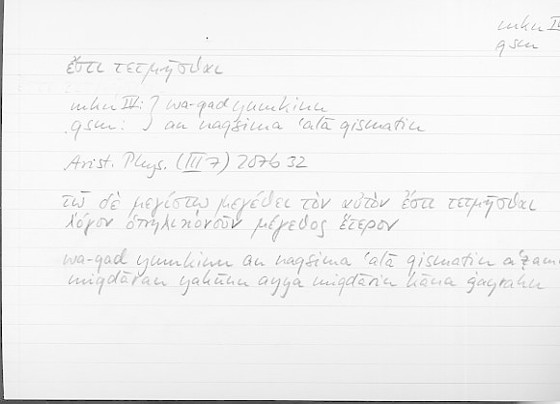 mkn IV
qsm
ἔστι τετμῆσθαι
mkn IV: } wa-qad yumkinu
qsm: } an naqsima ʿalā qismatin
Arist. Phys. (III 7) 207b32
τῷ δὲ μεγίστῳ μεγέθει τὸν αὐτὸν ἔστι τετμῆσθαι
λόγον ὁπηλικονοῦν μέγεθος ἕτερον
wa-qad yumkinu an naqsima ʿalā qismatin aʿẓam
miqdāran yakūnu ayya miqdārin kāna ġayrahu